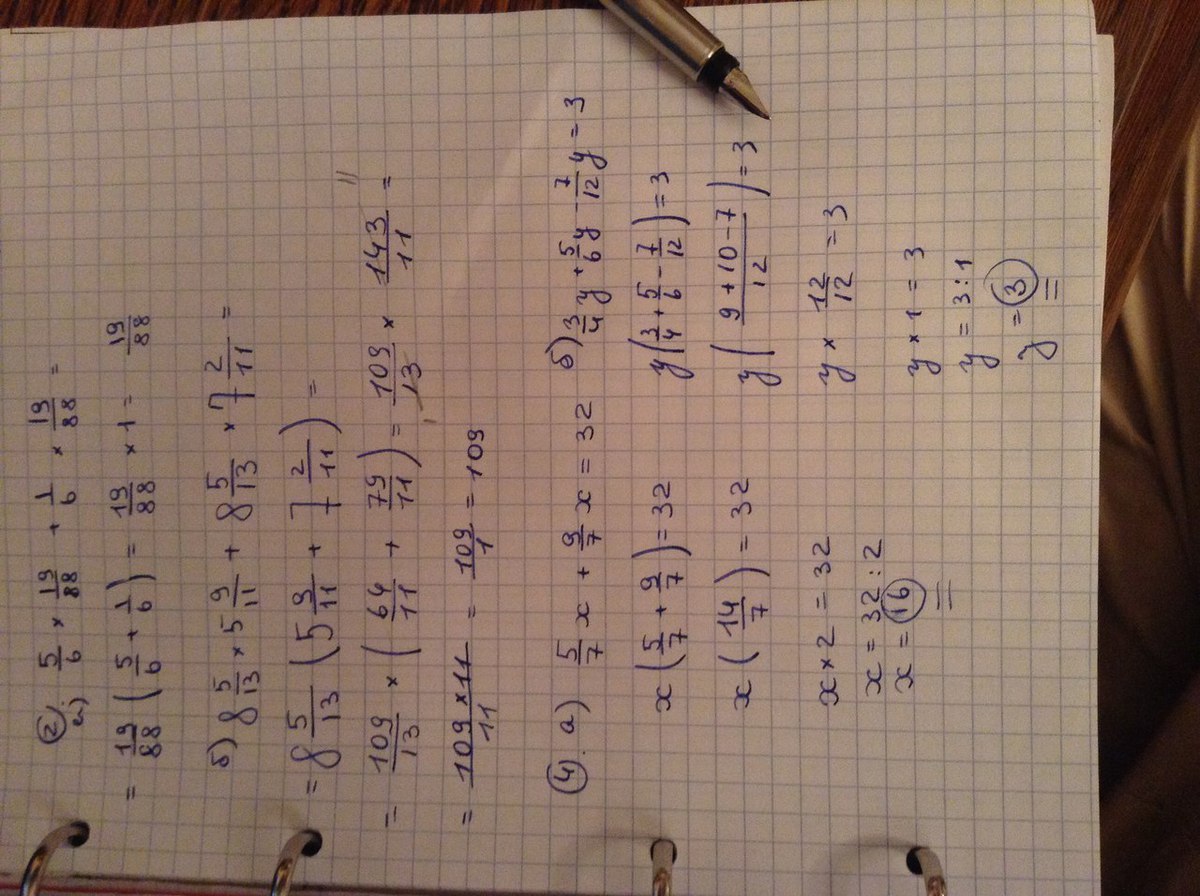 ② a) 5/6 × 19/88 + 1/6 × 19/88 =
= 19/88 (5/6 + 1/6) = 19/88 × 1 = 19/88
б) 8 5/13 × 5 9/11 + 8 5/13 × 7 2/11 =
= 8 5/13 (5 9/11 + 7 2/11) =
= 109/13 × (64/11 + 79/11) = 109/13 × 143/11 =
= 109 × 11/11 = 109/1 = 109
④. а) 5/7 x + 9/7 x = 32
x (5/7 + 9/7) = 32
x (14/7) = 32
x × 2 = 32
x = 32 : 2
x = 16
б) 3/4 y + 5/6 y - 7/12 y = 3
y (3/4 + 5/6 - 7/12) = 3
y (9 + 10 - 7/12) = 3
y × 12/12 = 3
y × 1 = 3
y = 3 : 1
y = 3